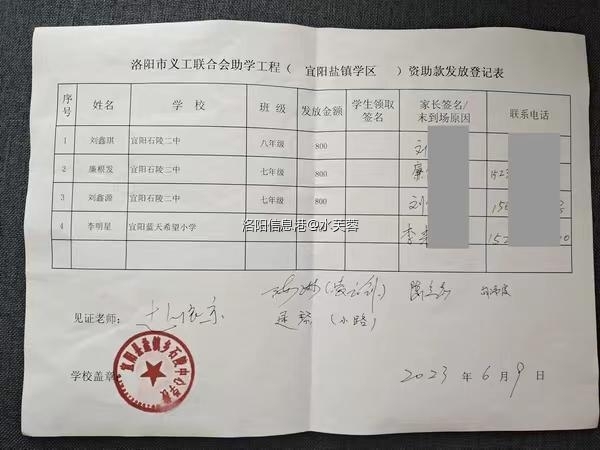 洛阳市义工联合会助学工程（ 宜阳盐镇学区 ）资助款发放登记表
序号 姓名 学 校 班 级 发放金额 学生领取签名 家长签名/未到场原因 联系电话
1 刘鑫琪 宜阳石陵二中 八年级 800 刘
2 廉根发 宜阳石陵二中 七年级 800 廉 152
3 刘鑫源 宜阳石陵二中 七年级 800 刘 15
4 李明星 宜阳蓝天希望小学 800 李 15
洛阳信息港@水芙蓉
见证老师：
（小路）
学校盖章
宜阳县盐镇乡石陵中心学校
2023 年 6 月 9 日